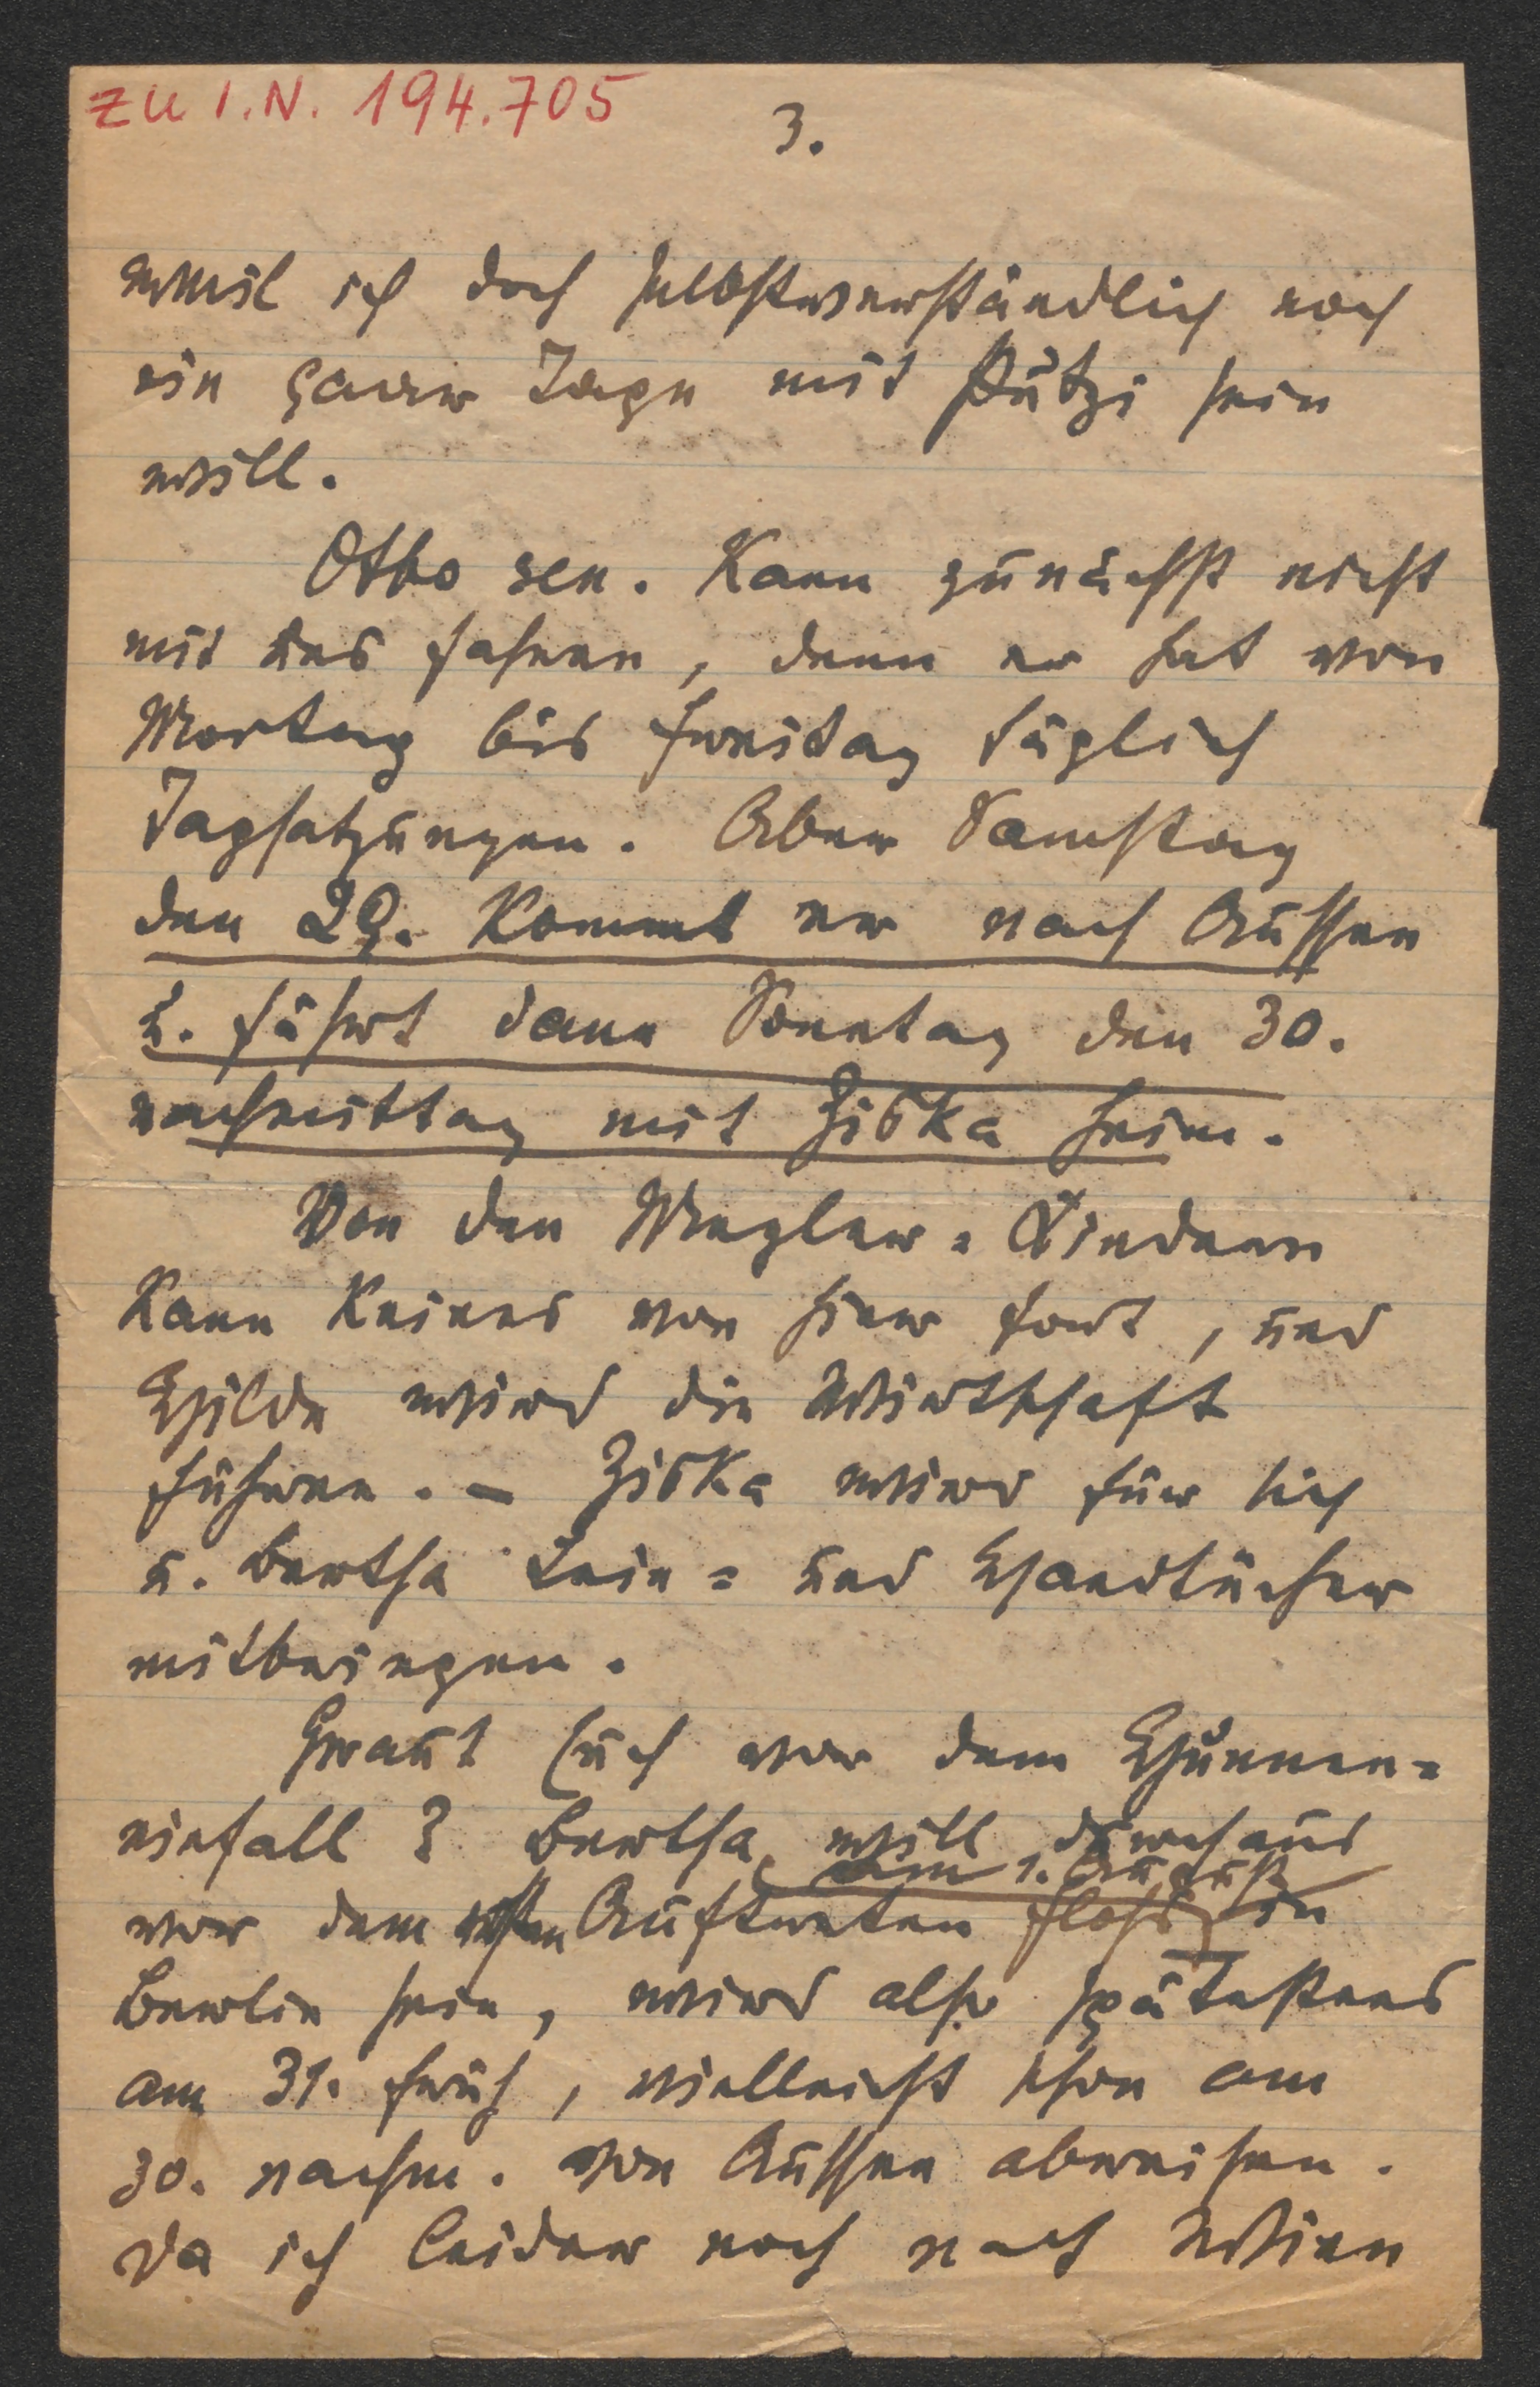 ZU I.N. 194.705
3.
weil ich doch selbstverständlich noch
ein paar Tage mit Putzi sein
will.
Otto sen. kann zunächst nicht
mit uns fahren, denn er hat von
Montag bis Freitag täglich
Tagsatzungen. Aber Samstag
den 29. kommt er nach Aussee
u. fährt dann Sonntag den 30.
nachmittag mit Ziska heim.
Von den Kindern
kann keines von hier fort, und
Hilde wird die Wirthschaft
führen. – Ziska wird für sich
u. Bertha Lein= und Handtücher
mitbringen.
Graut Euch vor dem Hunnen=
einfall? Bertha will durchaus
am 1. August
vor dem ersten Auftreten in
Berlin sein, wird also spätestens
am 31. früh, vielleicht schon am
30. nachm. von Aussee abreisen.
Da ich leider noch nach Wien